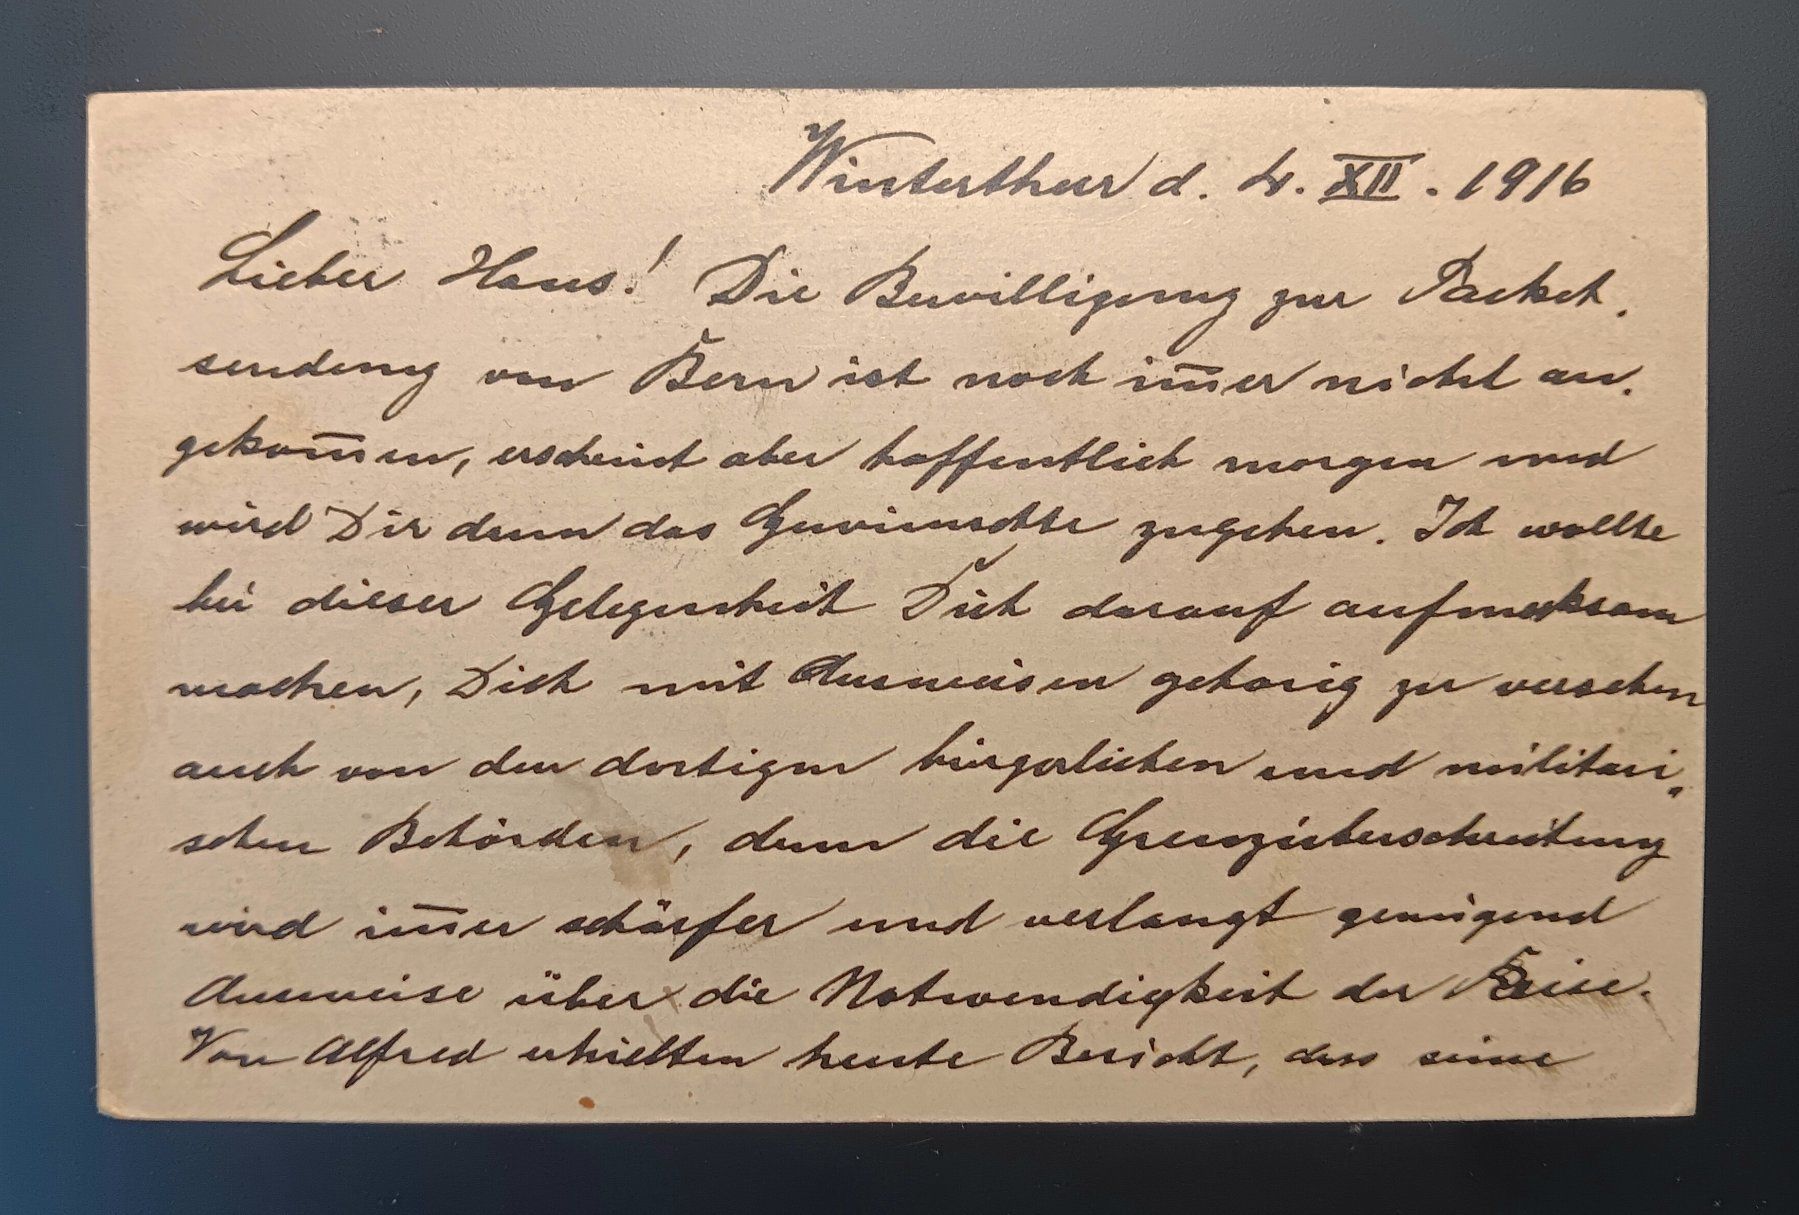 Winterthur d. 4. XII. 1916
Lieber Hans! Die Bewilligung zur Packet.
sendung von Bern ist noch im̅er nicht an.
gekom̅en, erscheint aber hoffentlich morgen und
wird Dir dann das Gewünschte zugehen. Ich wollte
bei dieser Gelegenheit Dich darauf aufmerksam
machen, Dich mit Ausweisen gehörig zu versehen
auch von den dortigen bürgerlichen und militäri„
schen Behörden, denn die Grenzüberschreitung
wird im̅er schärfer und verlangt genügend
Ausweise über die Notwendigkeit der Reise.
Von Alfred erhielten heute Bericht, dass seine